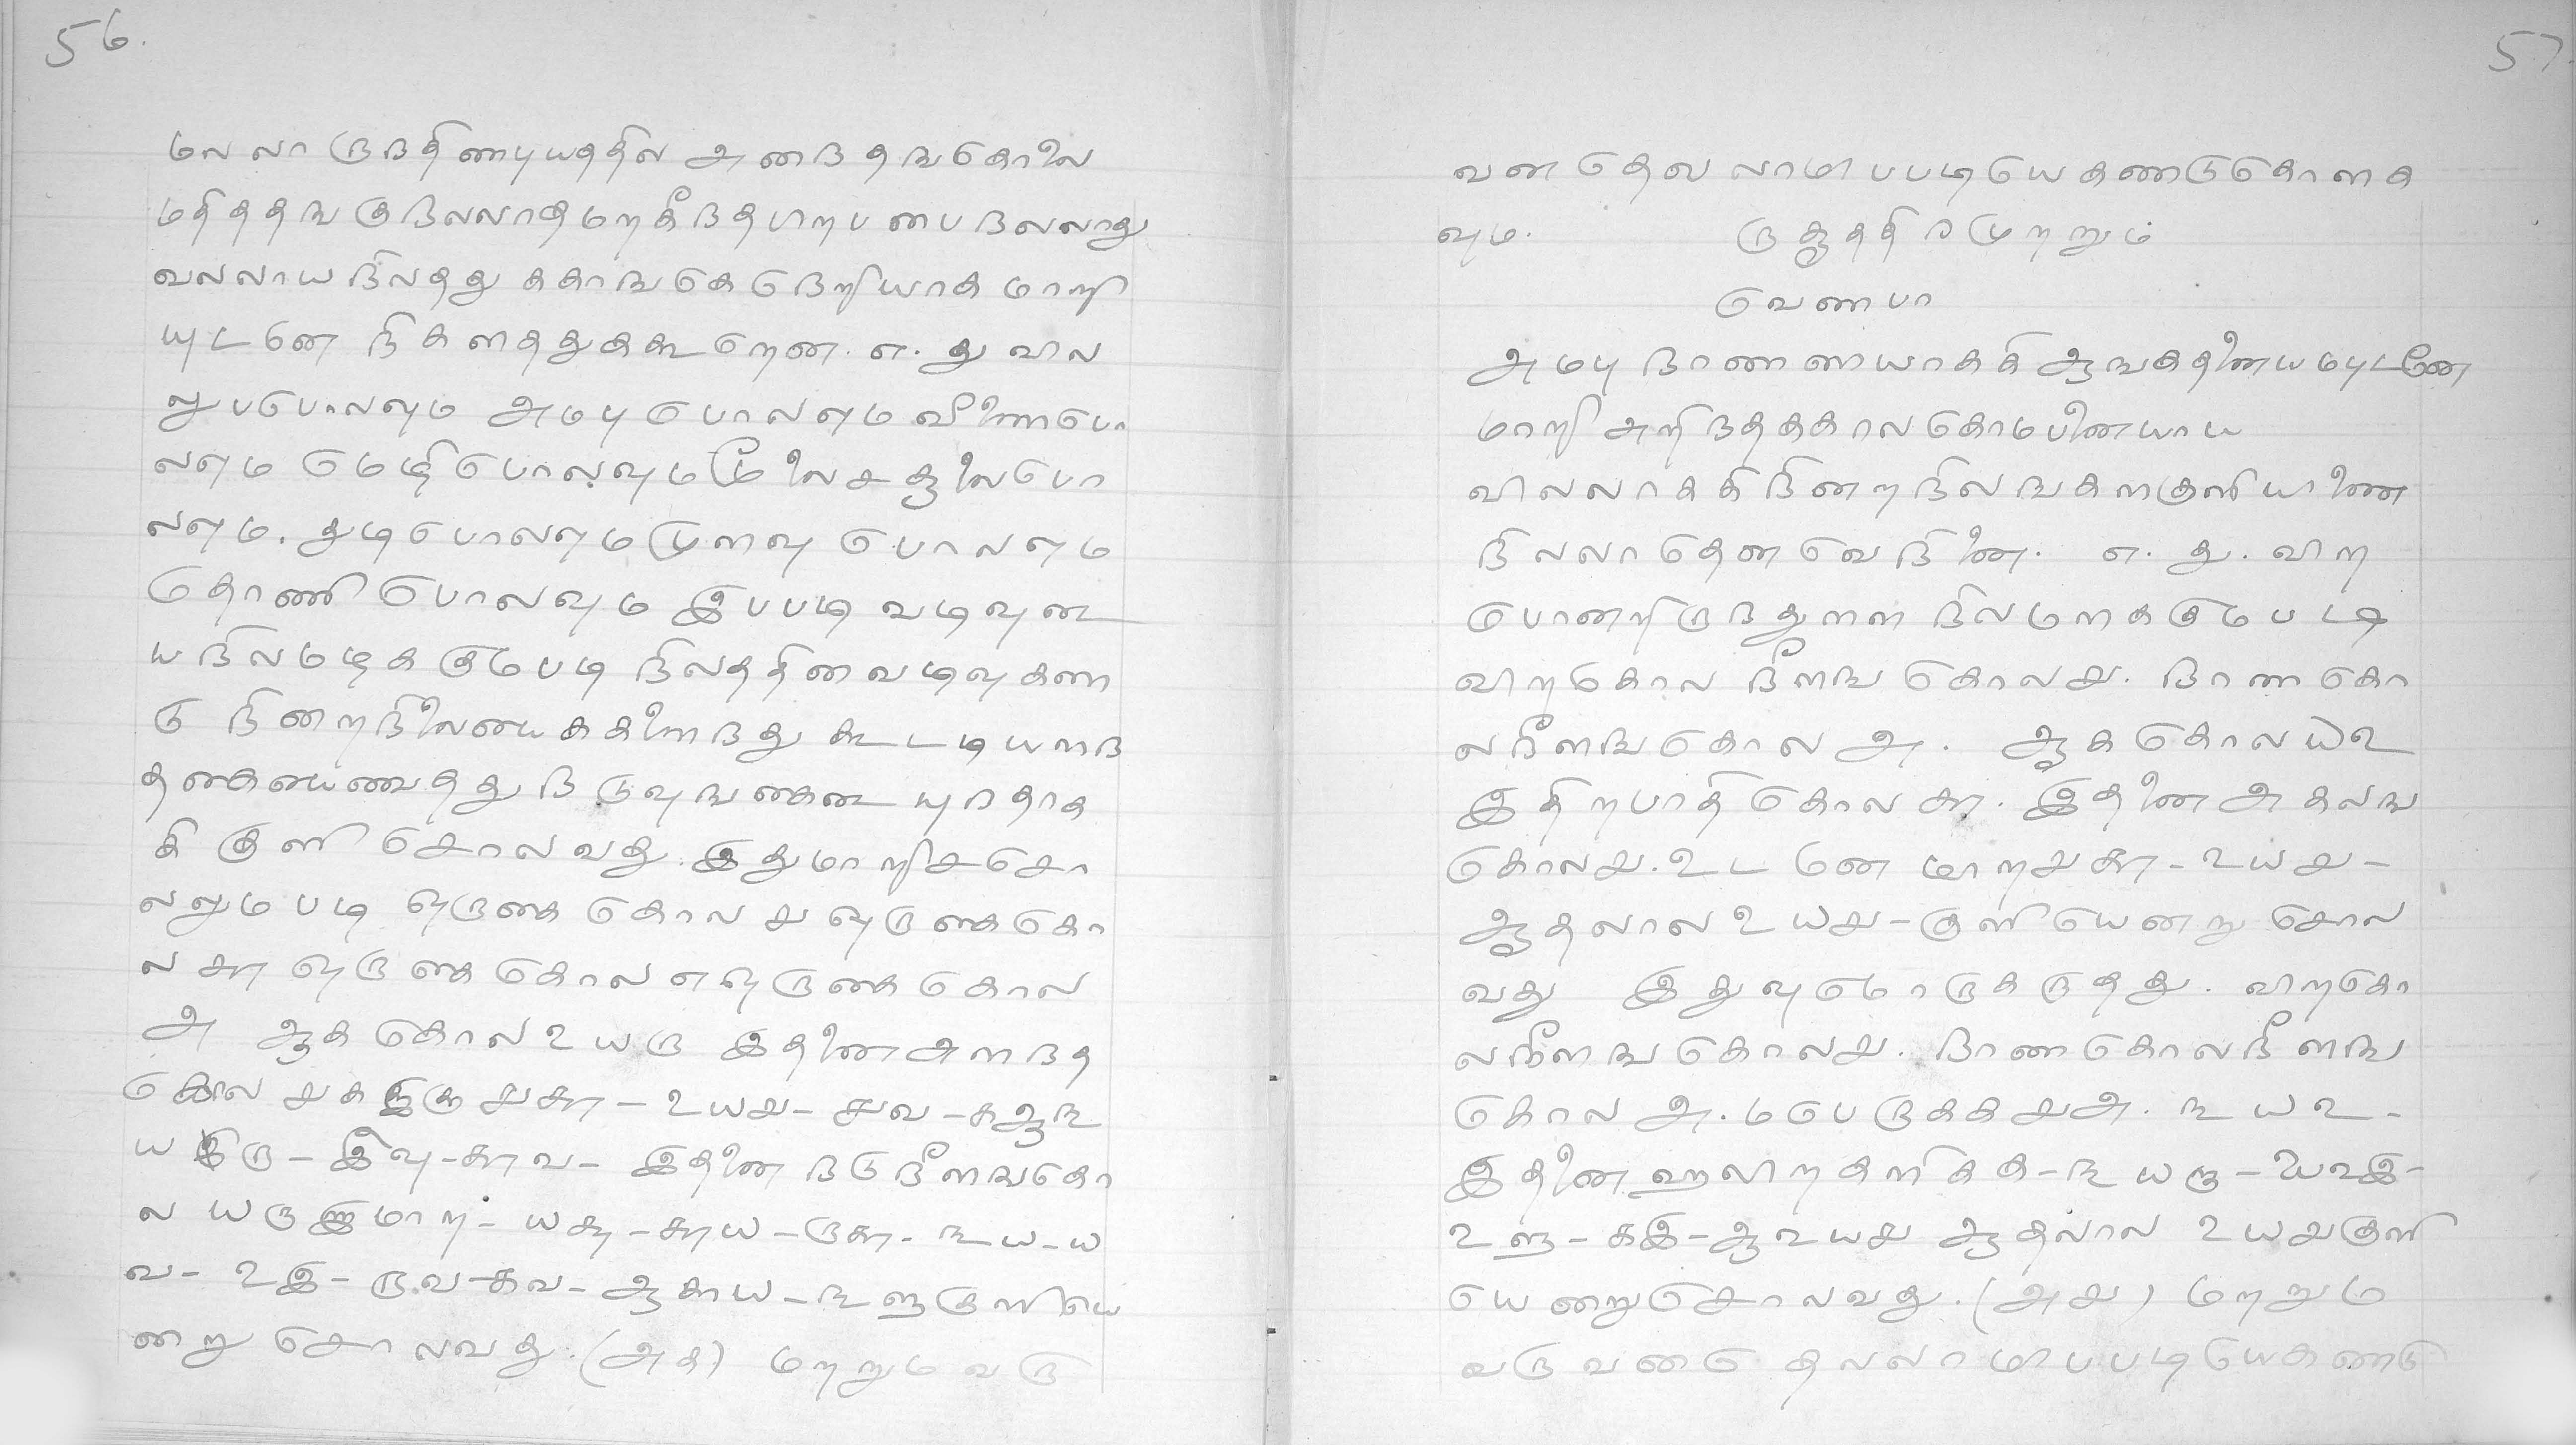 56.
மலலா ருநதிணபுயததில அனநதஙகொலை
மதிததஙகுநிலலாதமறகீநதபறபபைநலலாது
வலலாயநிலதது ககாஙகெநெறியாகமாறி
யுடனே நிகளததுககூறென. எ. து வில
லுபபொலவும அமபுபொலவும வீணைபொ
லவும மெழிபொலவுமமூலைசதுலைபொ
லவும. துடிபொலவுமமுளவு பொலவும
தொணிபொலவும இபபடி வடிவுடை
யநிலமடிககுமபடி நிலததினவடிவுகண
டு நினறநிலையைககளைநது கூடடியளந
தகையைணைதது நடுவுஙகடையுரதாக
கி குளி சொலவது. இதுமாறிசசொ
லலுமபடி ஒருகை கொல சு ஒருகைகொ
ல கூ ஒருகைகொல எ ஒருகை கொல
அ ஆக கொல உயரு இதனை அளநத
கொல சுக இரு சுகூ - உயசு - சுவ - கஆந
ய இரு - இவு - கூவ - இதனை நடுநீளஙகொ
ல யருஇமாற - யகூ - கூய - ருகூ - நய - ய
வ - உஇ - ருவ - கவ - ஆகூய - நளுகுளியெ
னறு சொலவது. (அக) மறறும வரு
57.
வன தெலலாமிபபடியெகணடுகொளக
வும. ருசூததிரமுறறும
வெணபா
அமபு நாணணயாககி ஆஙகதனையமபுடனே
மாறி அறிநதககாலகொமபினையாய
விலலாககி நினற நிலஙகளகுளியானை
நிலலாதெனவெநினை. எ. து. விற
பொனறிருநதுளள நிலமளககுமபடி
விறகொல நீளஙகொலசு. நாணகொ
லநீளஙகொல அ. ஆககொலயஉ
இதிறபாதிகொல கூ. இதனை அகலங
கொலசு. உடனே மாறசுகூ - உயசு -
ஆதலால உயசு - குளியெனறு சொல
வது இதுவுமொருகருதது. விறகொ
லநீளஙகொலசு. நாணகொலநீளங
கொல அ. மபெருகக சுஅ. நயஉ -
இதனைஹலிறகளிகக - நயரு - யெஉஇ -
உளு - கஇ - ஆஉயசு ஆதலால உயசுகுளி
யெனறுசொலவது. (அசு) மறறும
வருவனவெ தலலாமிபபடியெகணடு